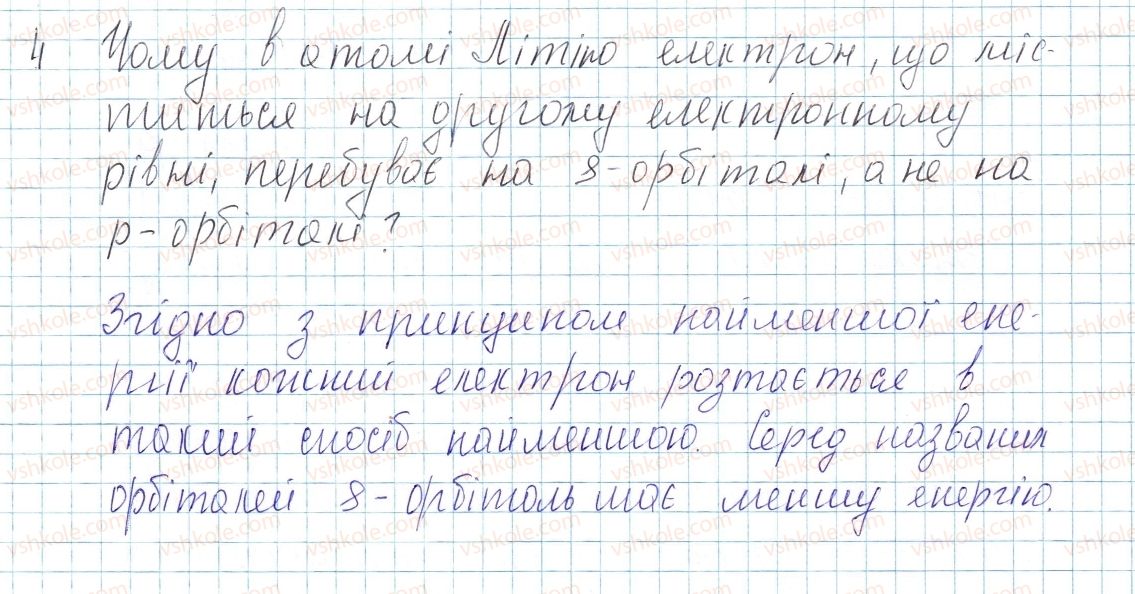 4 Чому в атомі Літію електрон, що міс-
титься на другому електронному
рівні, перебуває на s-орбіталі, а не на
p-орбіталі?
Згідно з принципом найменшої ене-
ргії кожний електрон розтається в
такий спосіб найменшою. Серед названих
орбіталей s-орбіталь має меншу енергію.